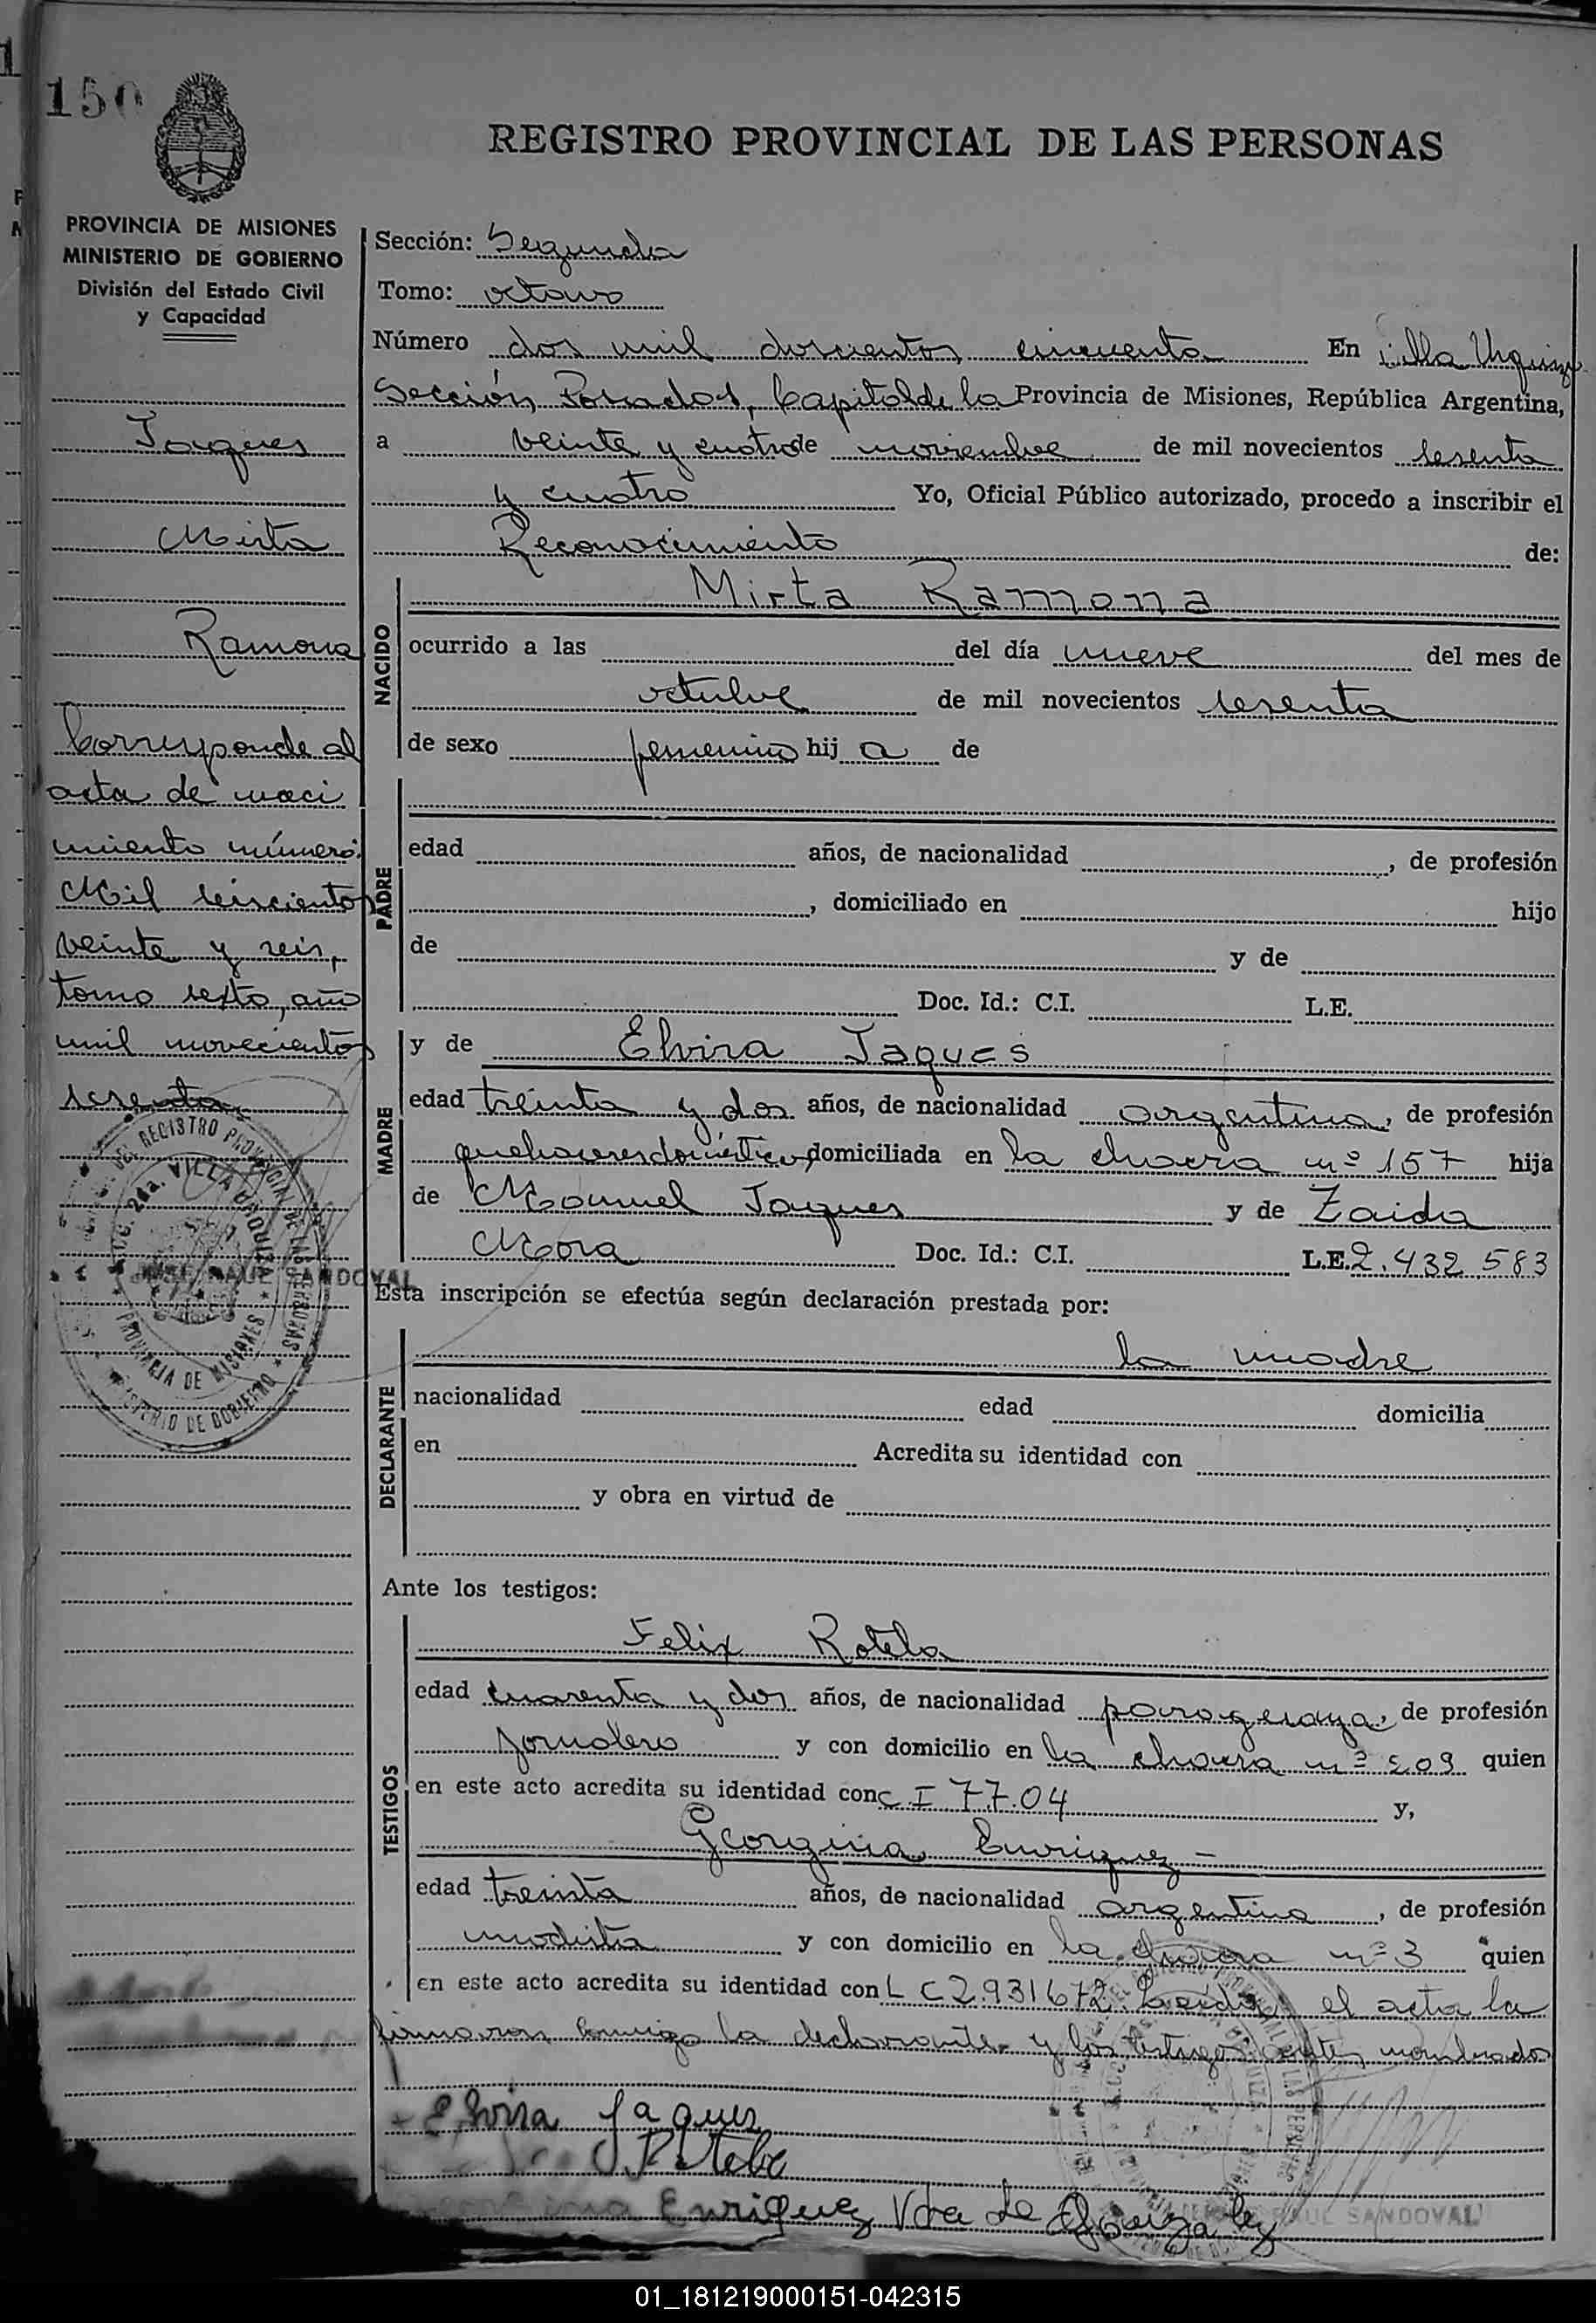 150
REGISTRO PROVINCIAL DE LAS PERSONAS
PROVINCIA DE MISIONES
MINISTERIO DE GOBIERNO
División del Estado Civil
y Capacidad
Jaques
Mirta
Ramona
Corresponde al
acta de naci
miento número:
Mil seiscientos
veinte y seis,
tomo sexto, año
mil novecientos
sesenta
DEL REGISTRO PROVINCIAL DE LAS PERSONAS
SECC. 2da. VILLA URQUIZA
RAUL SANDOVAL
PROVINCIA DE MISIONES
MINISTERIO DE GOBIERNO
Sección: Segunda
Tomo: octavo
Número dos mil doscientos cincuenta En Villa Urquiza
Sección Posadas, Capital de la Provincia de Misiones, República Argentina,
a veinte y cuatro de noviembre de mil novecientos sesenta
y cuatro Yo, Oficial Público autorizado, procedo a inscribir el
Reconocimiento de:
NACIDO
Mirta Ramona
ocurrido a las del día nueve del mes de
octubre de mil novecientos sesenta
de sexo femenino hij a de
PADRE
edad años, de nacionalidad , de profesión
, domiciliado en hijo
de y de
Doc. Id.: C.I. L.E.
MADRE
y de Elvira Jaques
edad treinta y dos años, de nacionalidad argentina, de profesión
quehaceres domésticos, domiciliada en la chacra nº 157 hija
de Manuel Jaques y de Zaida
Mora Doc. Id.: C.I. L.E. 2.432.583
Esta inscripción se efectúa según declaración prestada por:
DECLARANTE
la madre
nacionalidad edad domicilia
en Acredita su identidad con
y obra en virtud de
Ante los testigos:
TESTIGOS
Felix Rotela
edad cuarenta y dos años, de nacionalidad paraguaya, de profesión
jornalero y con domicilio en la chacra nº 209 quien
en este acto acredita su identidad con C.I 77.04 y,
Georgina Enriquez
edad treinta años, de nacionalidad argentina, de profesión
modista y con domicilio en la chacra nº 3 quien
en este acto acredita su identidad con L C 2.931672. Leída el acta la
firmaron conmigo la declarante y los testigos antes nombrados
Elvira Jaques
Rotela
Enriquez Vda de Gonzalez
RAUL SANDOVAL
01_181219000151-042315